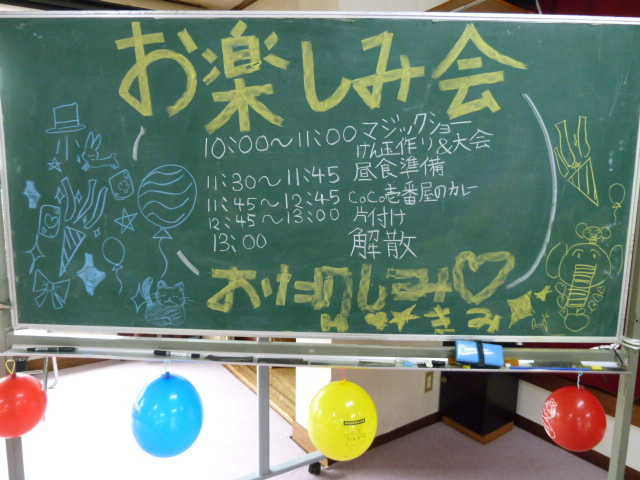 お楽しみ会
10:00〜11:00 マジックショー
けん玉作り&大会
11:30〜11:45 昼食準備
11:45〜12:45 CoCo壱番屋のカレー
12:45〜13:00 片付け
13:00 解散